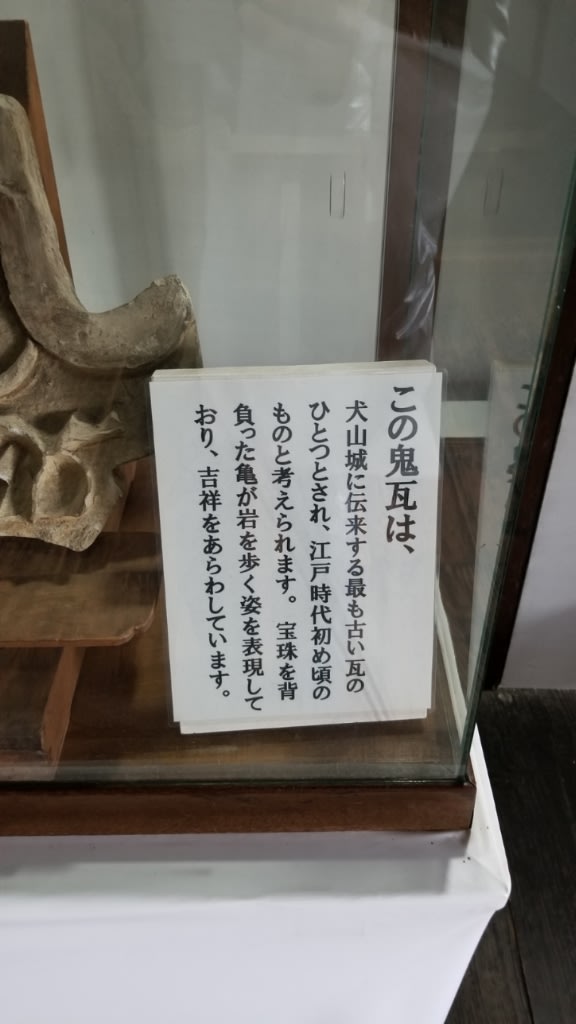 この鬼瓦は、
犬山城に伝来する最も古い瓦の
ひとつとされ、江戸時代初め頃の
ものと考えられます。宝珠を背
負った亀が岩を歩く姿を表現して
おり、吉祥をあらわしています。